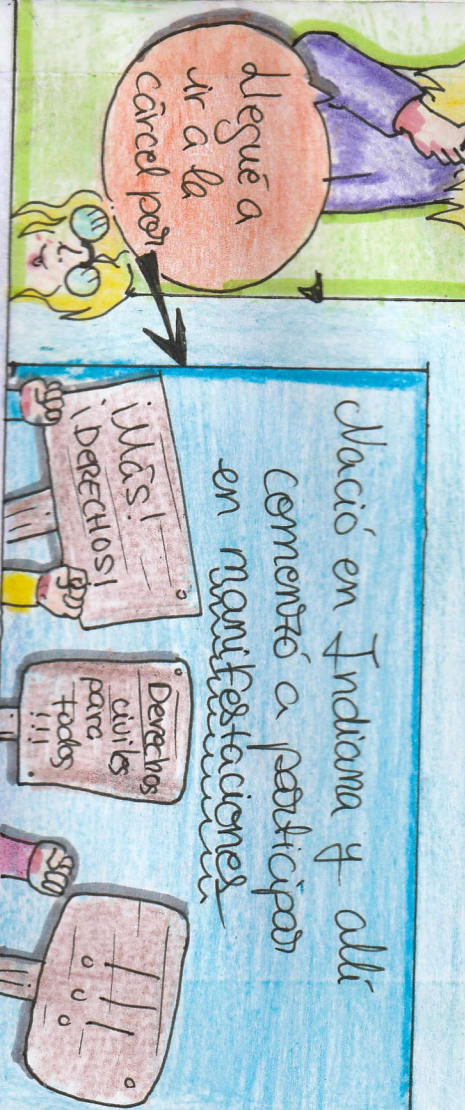 Llegué a
ir a la
cárcel por
Nació en Indiana y allí
comenzó a participar
en manifestaciones
¡Más!
¡DERECHOS!
Derechos
civiles
para
todos
!!!
!!!